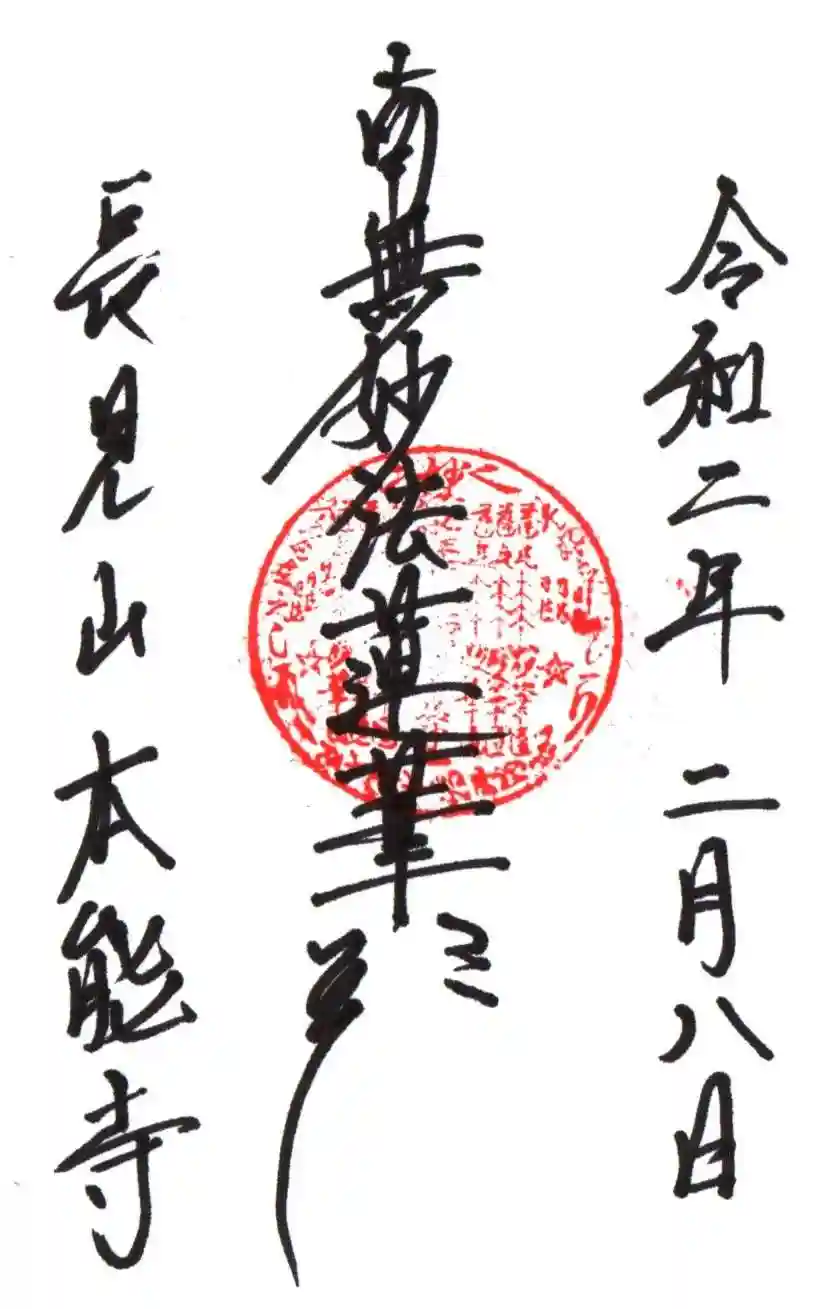 令和二年 二月八日
南無妙法蓮華
長見山 本能寺